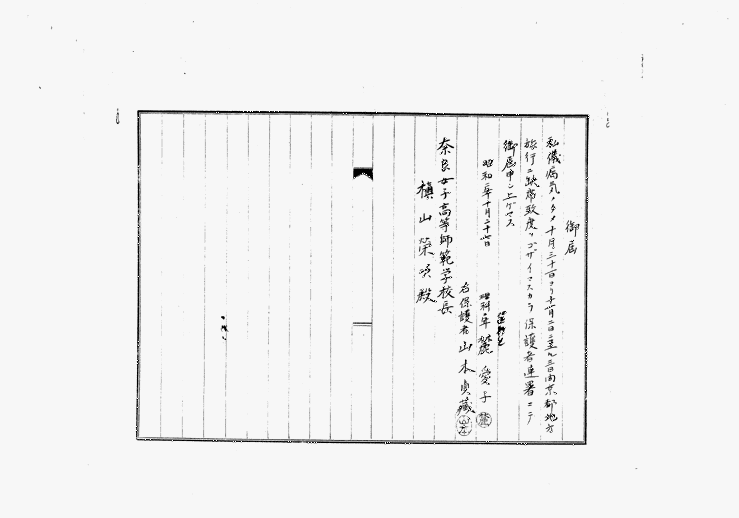 御届
私儀病気ノタメ十月三十一日ヨリ十一月二日ニ至ル三日間京都地方
旅行ニ缺席致度ウゴザイマスカラ保護者連署ニテ
御届申シ上ゲマス
昭和二年十月二十四日
理科一年
愛子
右保護者 山本貞藏
奈良女子高等師範学校長
槙山榮次殿